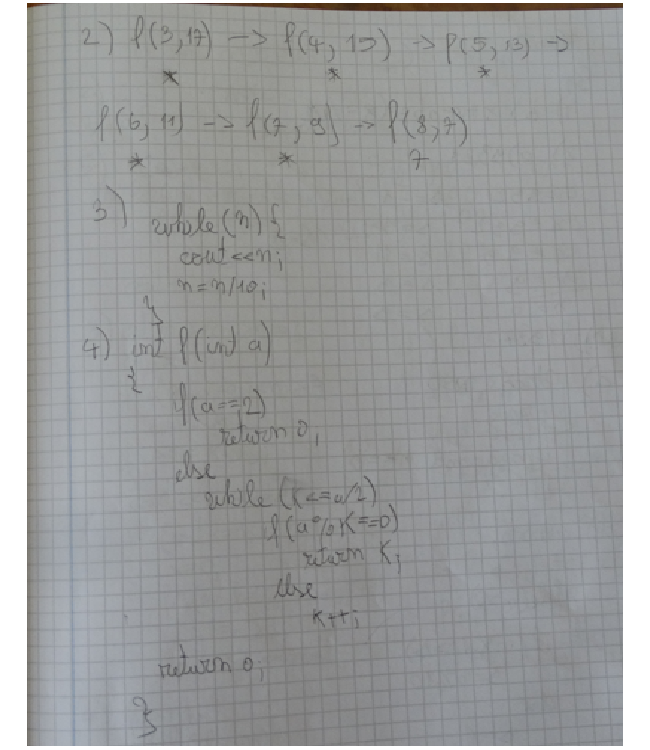 2) f(3,17) -> f(4,15) -> f(5,13) ->
* * *
f(6,11) -> f(7,9) -> f(8,7)
* * 7
3) while(n){
cout<<n;
n=n/10;
}
4) int f(int a)
{
if(a==2)
return 0;
else
while(K<=a/2)
if(a%K==0)
return K;
else
K++;
return 0;
}